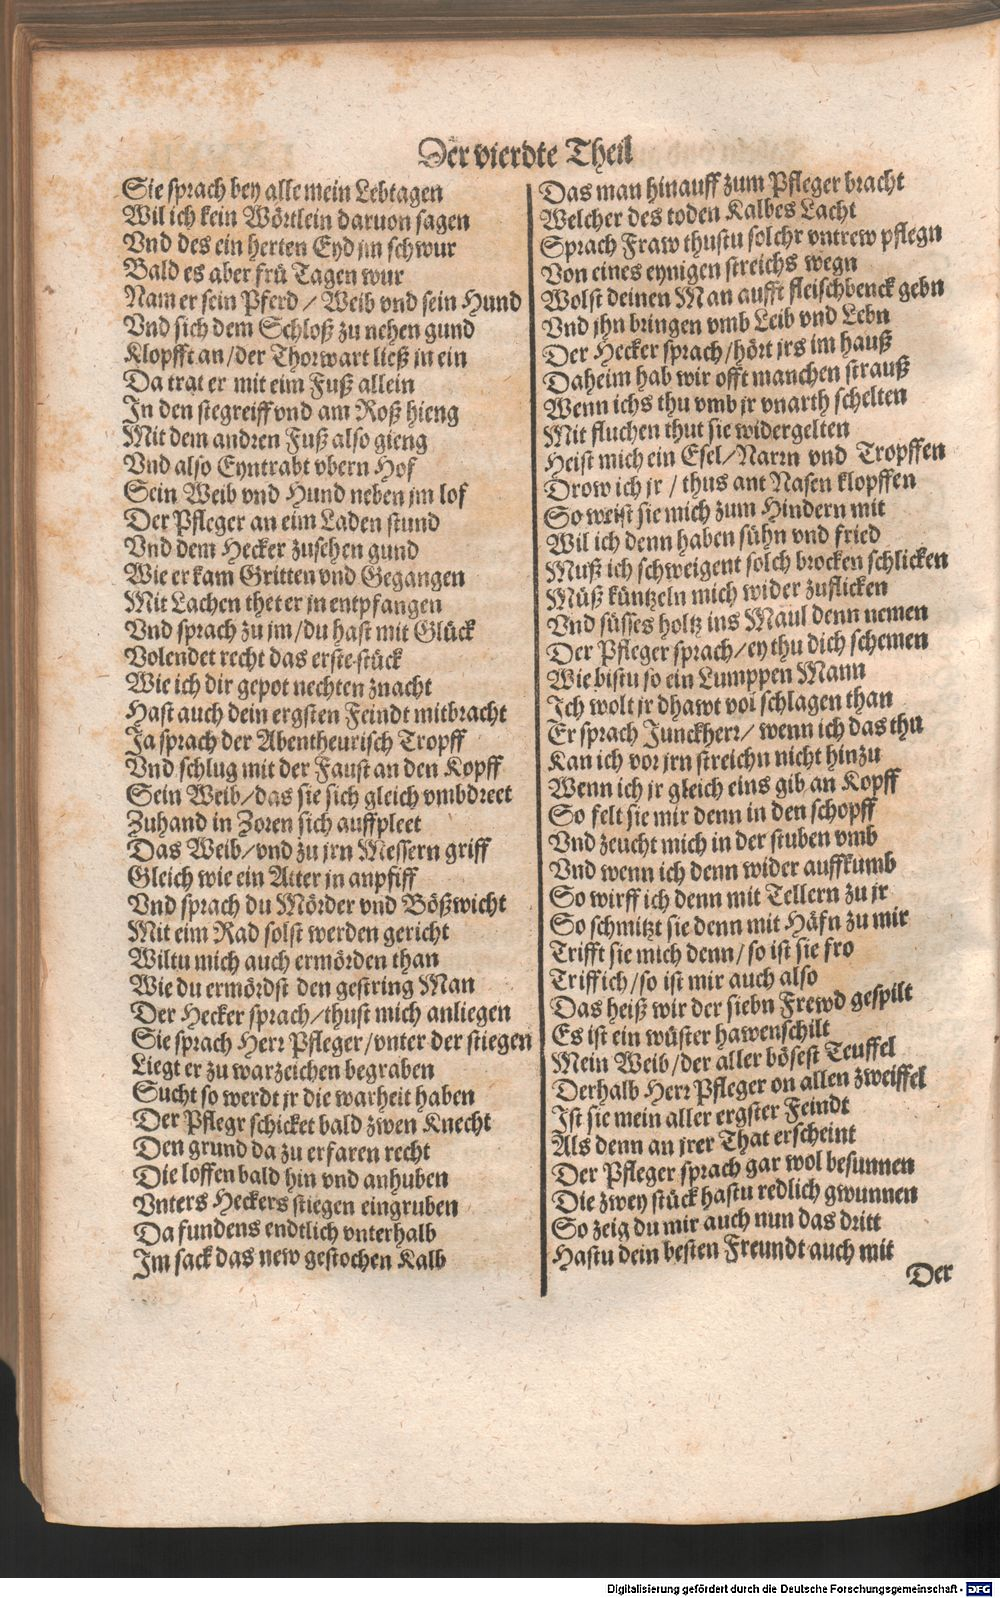 Der vierdte Theil
Sie sprach bey alle mein Lebtagen
Wil ich kein Wörtlein daruon sagen
Vnd des ein herten Eyd jm schwur
Bald es aber frü Tagen wur
Nam er sein Pferd / Weib vnd sein Hund
Vnd sich dem Schloß zu nehen gund
Klopfft an / der Thorwart ließ jn ein
Da trat er mit eim Fuß allein
In den stegreiff vnd am Roß hieng
Mit dem andren Fuß also gieng
Vnd also Eyntrabt vbern Hof
Sein Weib vnd Hund neben jm lof
Der Pfleger an eim Laden stund
Vnd dem Hecker zusehen gund
Wie er kam Gritten vnd Gegangen
Mit Lachen thet er jn entpfangen
Vnd sprach zu jm / du hast mit Glück
Volendet recht das erste stück
Wie ich dir gepot nechten znacht
Hast auch dein ergsten Feindt mitbracht
Ja sprach der Abentheurisch Tropff
Vnd schlug mit der Faust an den Kopff
Sein Weib / das sie sich gleich vmbdreet
Zuhand in Zoren sich auffpleet
Das Weib / vnd zu jrn Messern griff
Gleich wie ein Atter jn anpfiff
Vnd sprach du Mörder vnd Bößwicht
Mit eim Rad solst werden gericht
Wiltu mich auch ermörden than
Wie du ermördst den gestring Man
Der Hecker sprach / thust mich anliegen
Sie sprach Herr Pfleger / vnter der stiegen
Liegt er zu warzeichen begraben
Sucht so werdt jr die warheit haben
Der Pflegr schicket bald zwen Knecht
Den grund da zu erfaren recht
Die loffen bald hin vnd anhuben
Vnters Heckers stiegen eingruben
Da fundens endtlich vnterhalb
Im sack das new gestochen Kalb
Das man hinauff zum Pfleger bracht
Welcher des toden Kalbes Lacht
Sprach Fraw thustu solchr vntrew pflegn
Von eines eynigen streichs wegn
Wolst deinen Man aufft fleischbenck gebn
Vnd jhn bringen vmb Leib vnd Lebn
Der Hecker sprach / hört jrs im hauß
Daheim hab wir offt manchen strauß
Wenn ichs thu vmb jr vnarth schelten
Mit fluchen thut sie widergelten
Heist mich ein Esel / Narrn vnd Tropffen
Drow ich jr / thus ant Nasen klopffen
So weist sie mich zum Hindern mit
Wil ich denn haben sühn vnd fried
Muß ich schweigent solch brocken schlicken
Müß küntzeln mich wider zuflicken
Vnd süsses holtz ins Maul denn nemen
Der Pfleger sprach / ey thu dich schemen
Wie bistu so ein Lumppen Mann
Ich wolt jr dhawt vol schlagen than
Er sprach Junckherr / wenn ich das thu
Kan ich vor jrn streichn nicht hinzu
Wenn ich jr gleich eins gib an Kopff
So felt sie mir denn in den schopff
Vnd zeucht mich in der stuben vmb
Vnd wenn ich denn wider auffkumb
So wirff ich denn mit Tellern zu jr
So schmitzt sie denn mit Häfn zu mir
Trifft sie mich denn / so ist sie fro
Triff ich / so ist mir auch also
Das heiß wir der siebn Frewd gespilt
Es ist ein wüster hawenschilt
Mein Weib / der aller bösest Teuffel
Derhalb Herr Pfleger on allen zweiffel
Ist sie mein aller ergster Feindt
Als denn an jrer That erscheint
Der Pfleger sprach gar wol besunnen
Die zwey stück hastu redlich gwunnen
So zeig du mir auch nun das dritt
Hastu dein besten Freundt auch mit
Der
Digitalisierung gefördert durch die Deutsche Forschungsgemeinschaft - DFG